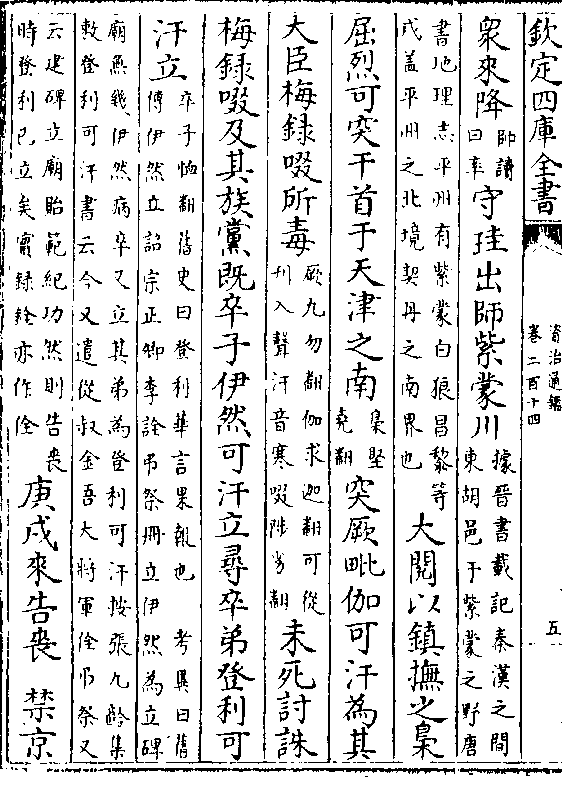 欽定四庫全書
資治通鑑
卷二百十四
五
衆來降
帥讀
曰率
守珪出師紫蒙川
據晉書載記秦漢之間
東胡邑于紫蒙之野唐
書地理志平州有紫蒙白狼昌黎等
戍蓋平州之北境契丹之南界也
大閱以鎮撫之梟
屈烈可突干首于天津之南
梟堅
堯翻
突厥毗伽可汗為其
大臣梅録啜所毒
厥九勿翻伽求迦翻可從
刋入聲汗音寒啜陟劣翻
未死討誅
梅録啜及其族黨既卒子伊然可汗立尋卒弟登利可
汗立
卒子恤翻舊史曰登利華言果報也考異曰舊
傳伊然立詔宗正卿李詮弔祭冊立伊然為立碑
廟無幾伊然病卒又立其弟為登利可汗按張九齡集
敕登利可汗書云今又遣從叔金吾大將軍佺弔祭又
云建碑立廟貽範紀功然則告喪
時登利已立矣實録銓亦作佺
庚戌來告喪 禁京